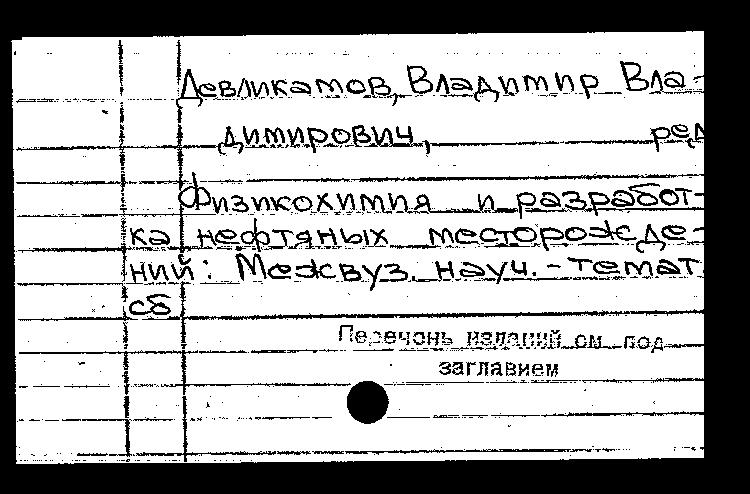 Девликамов, Владимир Вла-
димирович, ред
Физикохимия и разработ-
ка нефтяных месторожде-
ний: Межвуз. науч.-темат.
сб
Перечень изданий см под
заглавием